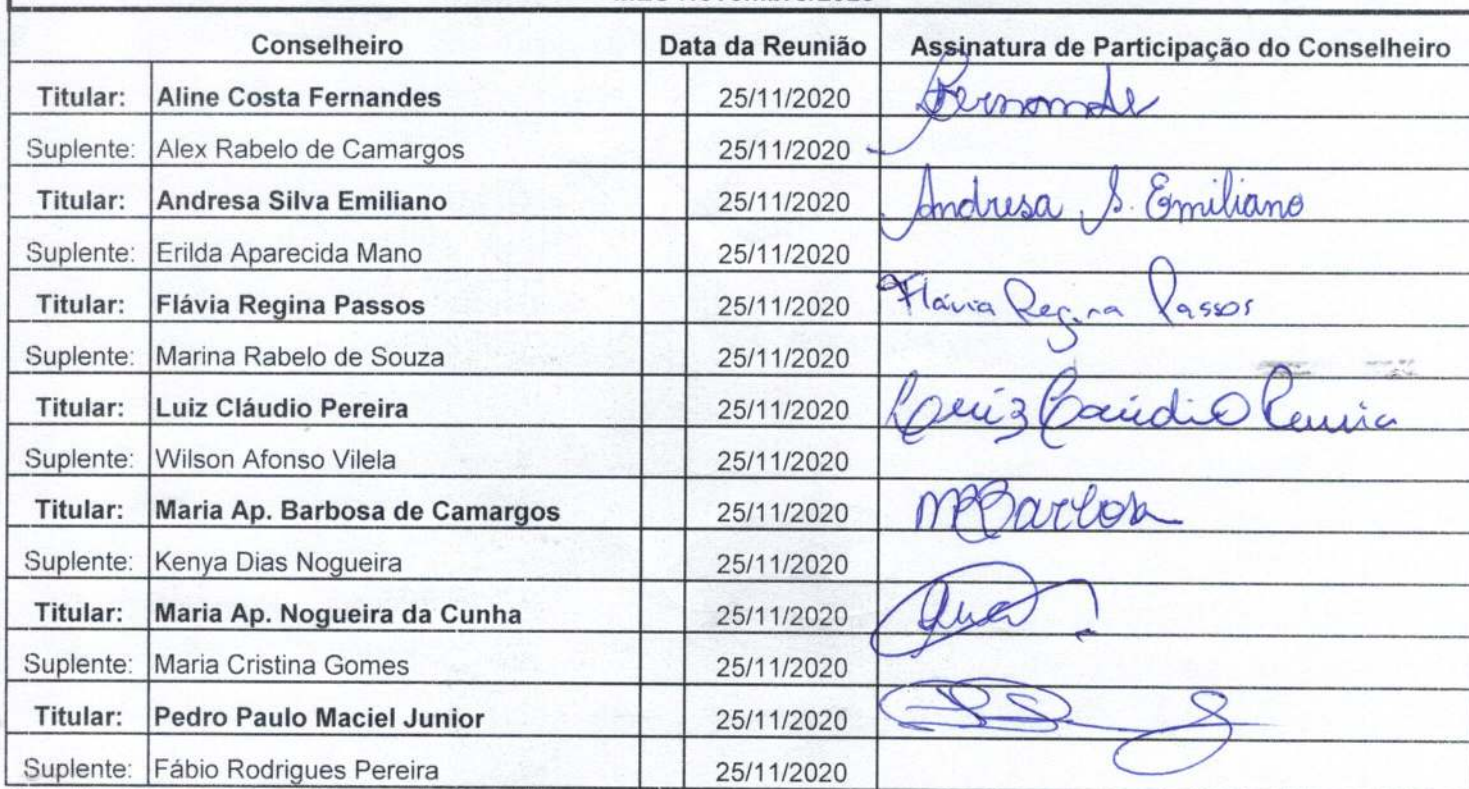 Conselheiro Data da Reunião Assinatura de Participação do Conselheiro
Titular: Aline Costa Fernandes 25/11/2020 Fernande
Suplente: Alex Rabelo de Camargos 25/11/2020
Titular: Andresa Silva Emiliano 25/11/2020 Andresa S. Emiliano
Suplente: Erilda Aparecida Mano 25/11/2020
Titular: Flávia Regina Passos 25/11/2020 Flávia Regina Passos
Suplente: Marina Rabelo de Souza 25/11/2020
Titular: Luiz Cláudio Pereira 25/11/2020 Luiz Cláudio Pereira
Suplente: Wilson Afonso Vilela 25/11/2020
Titular: Maria Ap. Barbosa de Camargos 25/11/2020 Barbosa
Suplente: Kenya Dias Nogueira 25/11/2020
Titular: Maria Ap. Nogueira da Cunha 25/11/2020
Suplente: Maria Cristina Gomes 25/11/2020
Titular: Pedro Paulo Maciel Junior 25/11/2020
Suplente: Fábio Rodrigues Pereira 25/11/2020